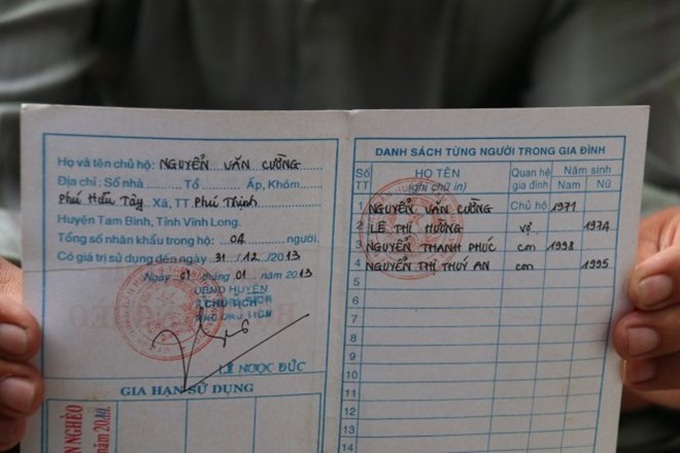 Họ và tên chủ hộ: NGUYỄN VĂN CƯỜNG
Địa chỉ: Số nhà Tổ Ấp, Khóm
Phú Hữu Tây Xã, TT Phú Thịnh
Huyện Tam Bình, Tỉnh Vĩnh Long.
Tổng số nhân khẩu trong hộ: 04 người.
Có giá trị sử dụng đến ngày 31 / 12 / 2013
Ngày 01 tháng 01 năm 2013
UBND HUYỆN
CHỦ TỊCH
LÊ NGỌC ĐỨC
GIA HẠN SỬ DỤNG
NGHÈO
năm 20
DANH SÁCH TỪNG NGƯỜI TRONG GIA ĐÌNH
Số TT HỌ TÊN (ghi chữ in) Quan hệ gia đình Năm sinh Nam Nữ
1 NGUYỄN VĂN CƯỜNG Chủ hộ 1971
2 LÊ THỊ HƯỜNG vợ 1974
3 NGUYỄN THANH PHÚC con 1998
4 NGUYỄN THỊ THUÝ AN con 1995
5
6
7
8
9
10
11
12
13
14